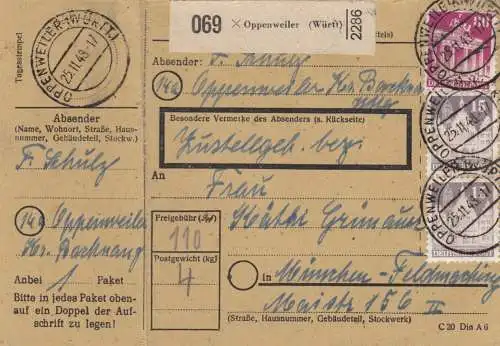 Tagesstempel
OPPENWEILER (WÜRTT)
25.11.48.-17
Absender
(Name, Wohnort, Straße, Haus-
nummer, Gebäudeteil, Stockw.)
F. Schulz
14a Oppenweiler
Kr. Backnang
Anbei 1 Paket
Bitte in jedes Paket oben-
auf ein Doppel der Auf-
schrift zu legen!
069 × Oppenweiler (Württ)
2286
Absender: F. Schulz
14a Oppenweiler Kr. Backnang
Besondere Vermerke des Absenders (s. Rückseite)
Zustellgeb. bez.
An
Frau
Käthi
Freigebühr
110
Postgewicht (kg)
4
in München - Feldmoching
156 II
(Straße, Hausnummer, Gebäudeteil, Stockwerk)
C 20 Din A 6
80
15
OPPENWEILER (WÜRTT)
25.11.48.-17